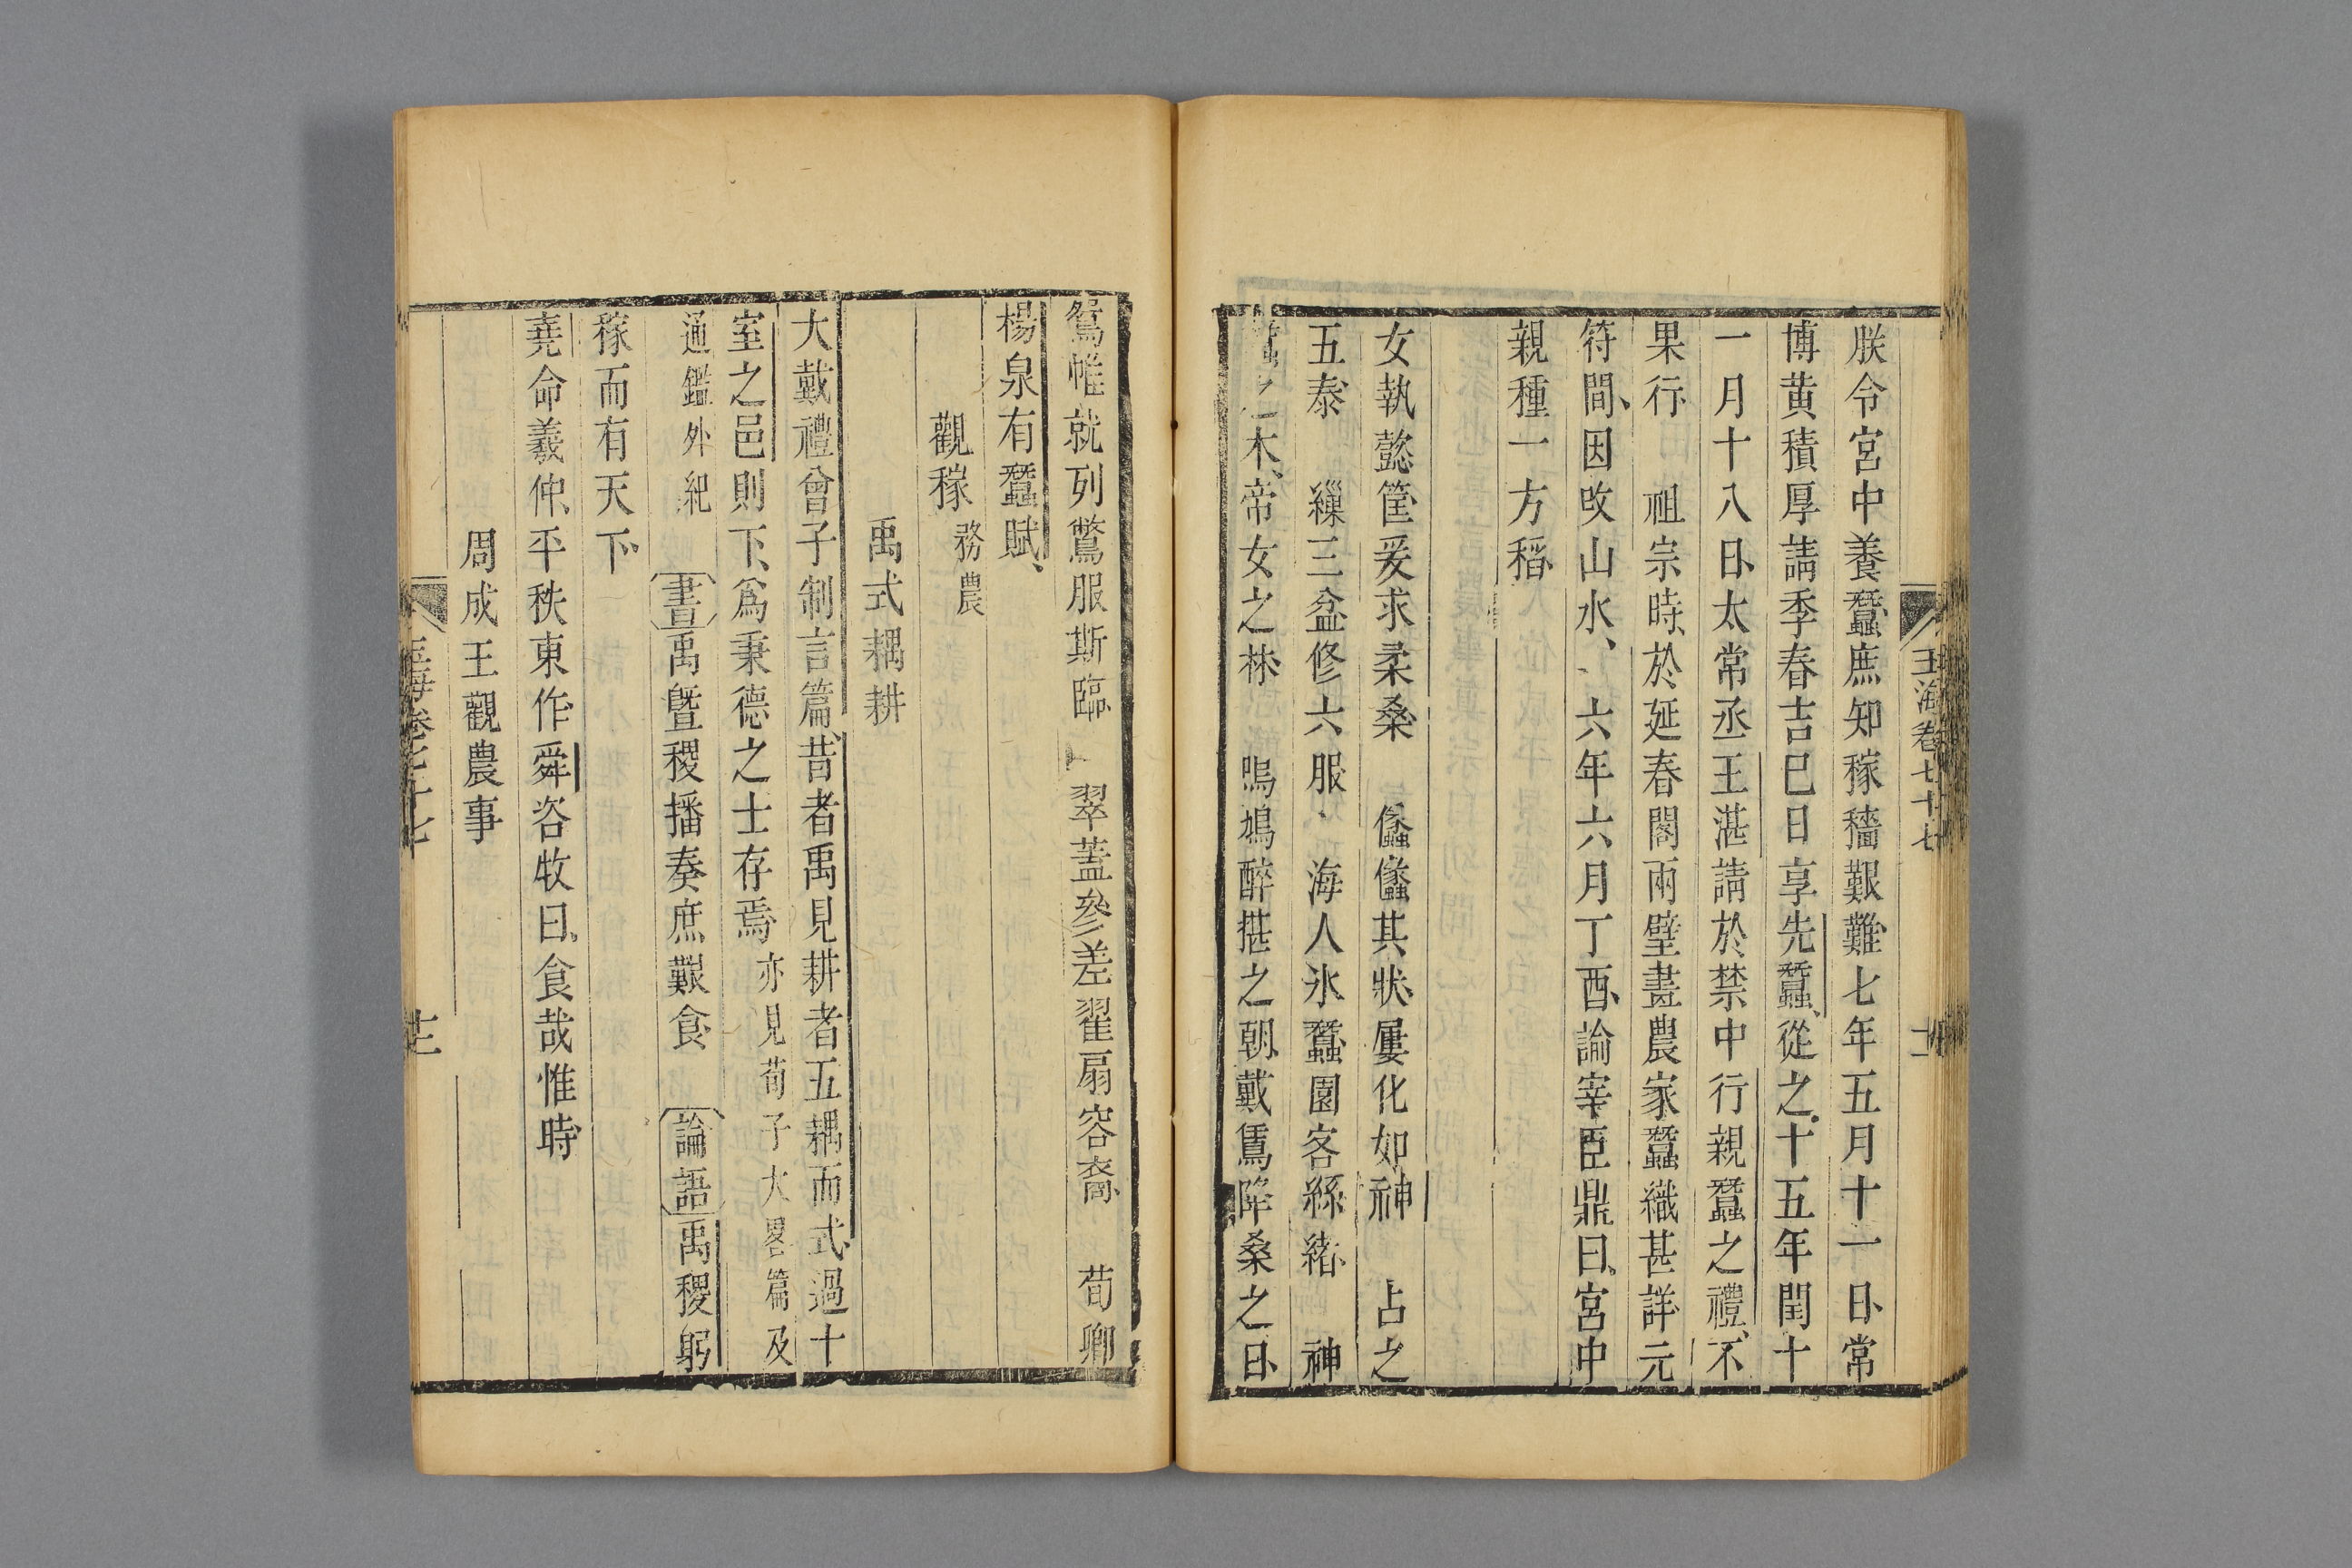 玉海卷七十七
朕令宮中養蠶庶知稼穡艱難七年五月十一日常
博黄積厚請季春吉巳日享先蠶從之十五年閏十
一月十八日太常丞王湛請於禁中行親蠶之禮不
果行 祖宗時於延春閣兩壁畫農家蠶織甚詳元
符間因攺山水 六年六月丁酉諭宰臣鼎曰宮中
親種一方稻
女執懿筐爰求柔桑 儽儽其狀屢化如神 占之
五泰 繅三盆修六服 海人氷蠶園客絲緒 神
蠶之木帝女之林 鳴鳩醉葚之朝戴鵀降桑之日
鴛帷就列鷩服斯臨 翠蓋參差翟扇容裔 荀卿
楊泉有蠶賦
觀稼 務農
禹式耦耕
大戴禮曾子制言篇昔者禹見耕者五耦而式過十
室之邑則下爲秉德之士存焉 亦見荀子大畧篇及
通鑑外紀 書禹曁稷播奏庶艱食 論語禹稷躬
稼而有天下
堯命羲仲平秩東作舜咨牧曰食哉惟時
周成王觀農事
玉海卷七十七